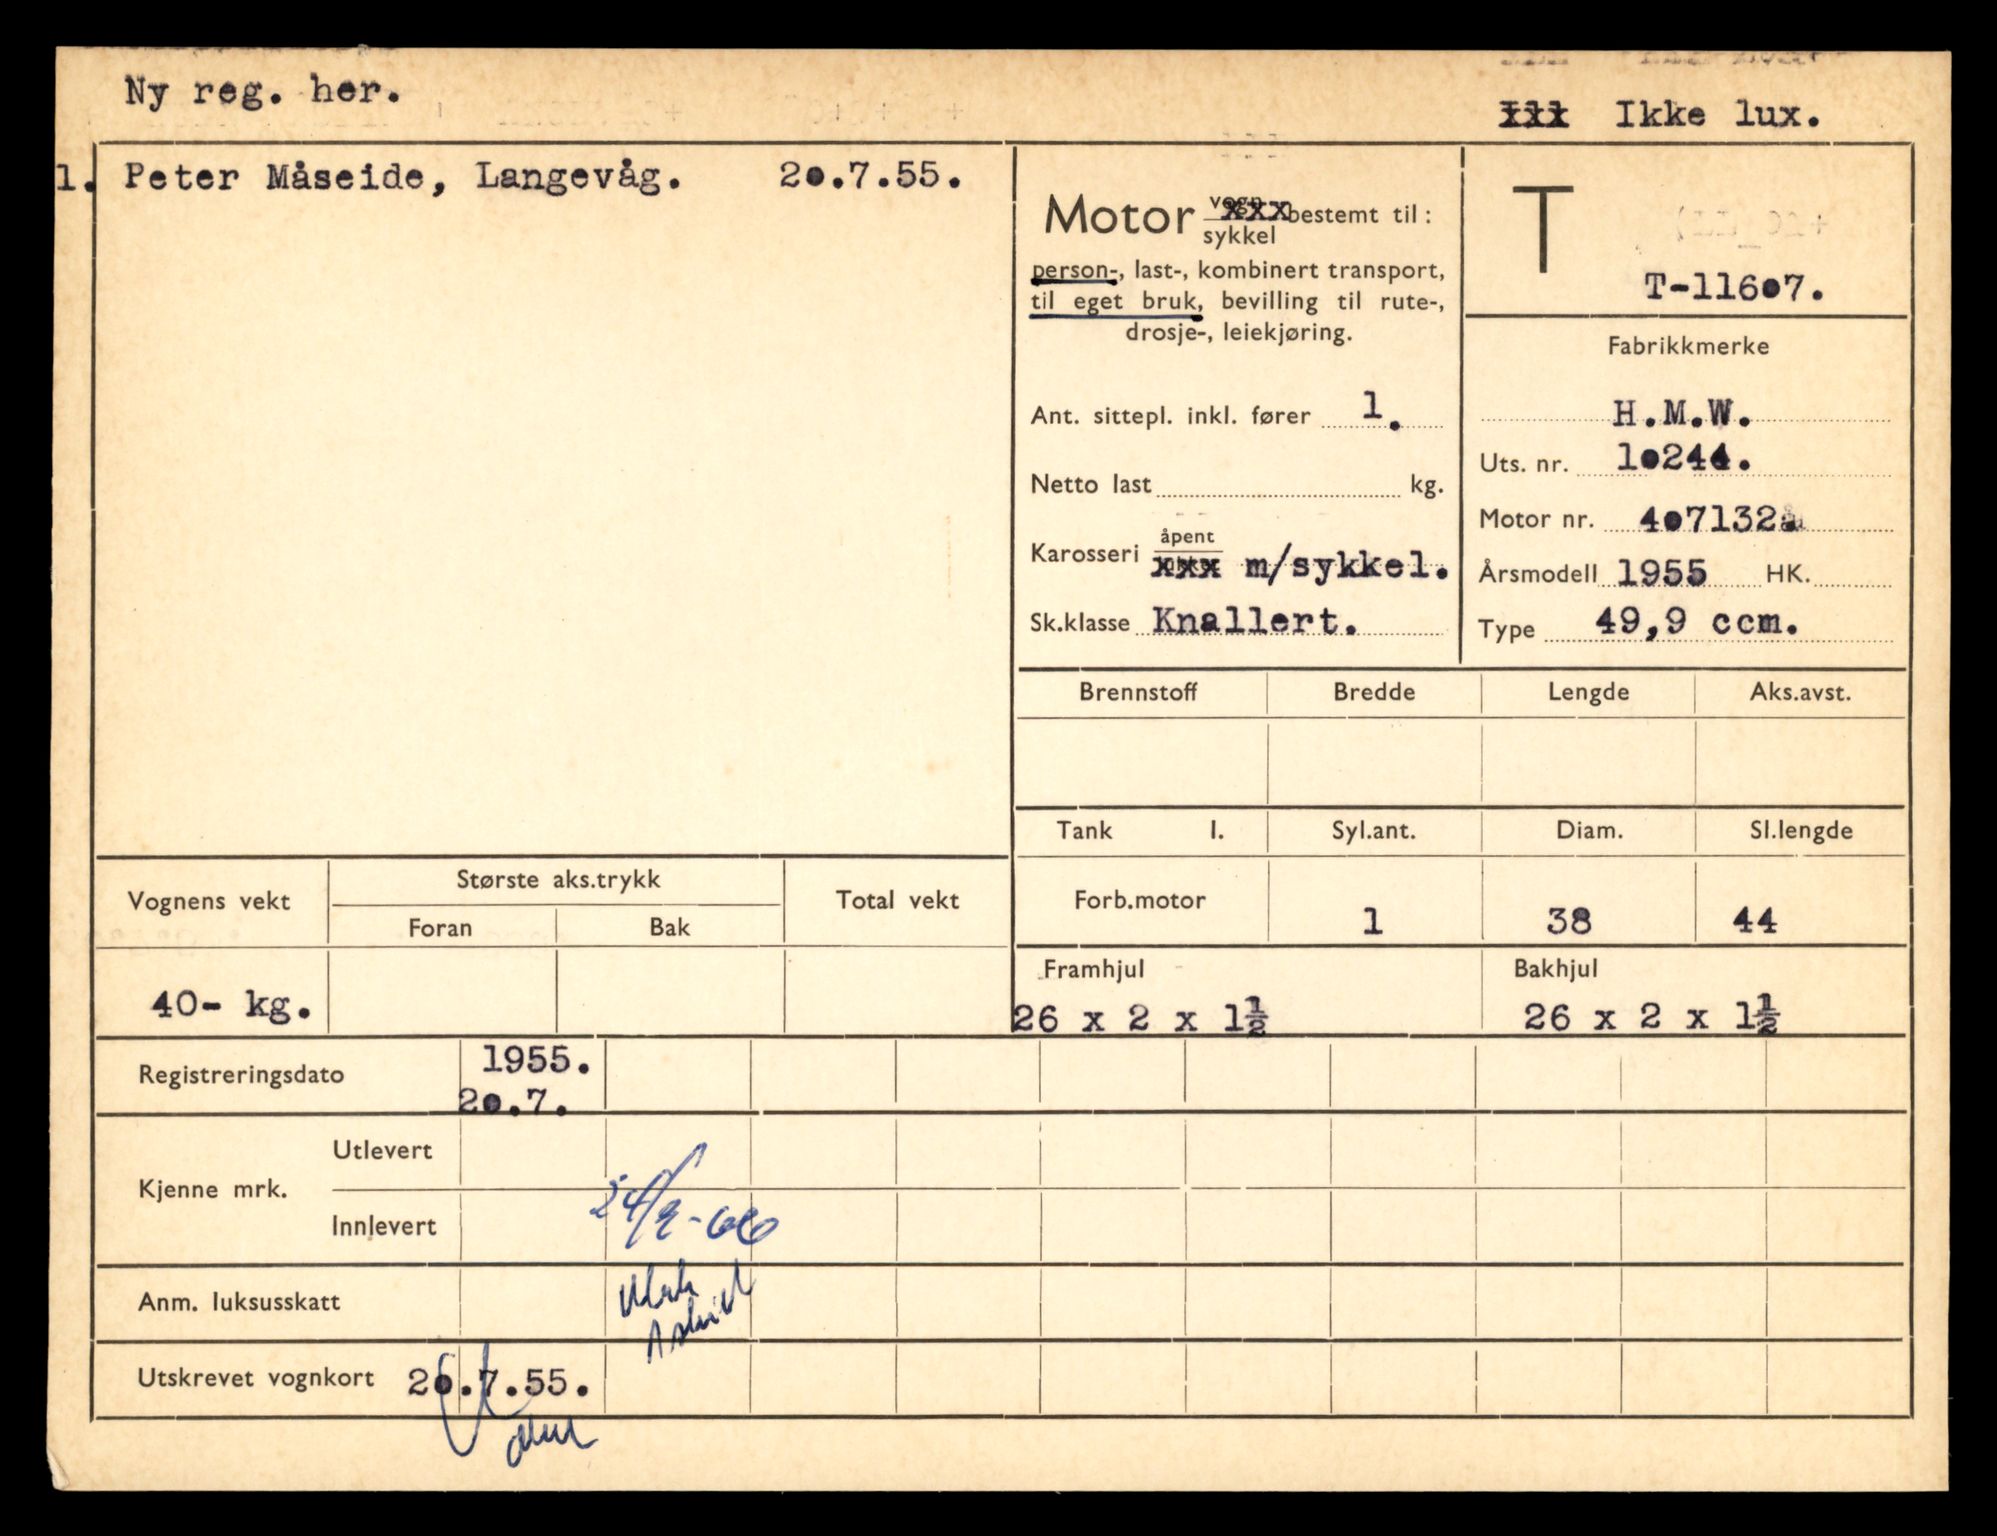 Ny reg. her.
xxx Ikke lux.
1. Peter Måseide, Langevåg. 20.7.55.
Motor vogn xxx bestemt til :
sykkel
person-, last-, kombinert transport,
til eget bruk, bevilling til rute-,
drosje-, leiekjøring.
Ant. sittepl. inkl. fører 1.
Netto last kg.
Karosseri åpent
xxx m/sykkel.
Sk.klasse Knallert.
T
T-11607.
Fabrikkmerke
H.M.W.
Uts. nr. 10244.
Motor nr. 407132.
Årsmodell 1955 HK.
Type 49,9 ccm.
Brennstoff Bredde Lengde Aks.avst.
Tank l. Syl.ant. Diam. Sl.lengde
Forb.motor 1 38 44
Framhjul Bakhjul
26 x 2 x 1½ 26 x 2 x 1½
Vognens vekt Største aks.trykk Total vekt
Foran Bak
40- kg.
Registreringsdato 1955.
20.7.
Kjenne mrk. Utlevert
Innlevert 24/9-66
Anm. luksusskatt
Utskrevet vognkort 20.7.55.